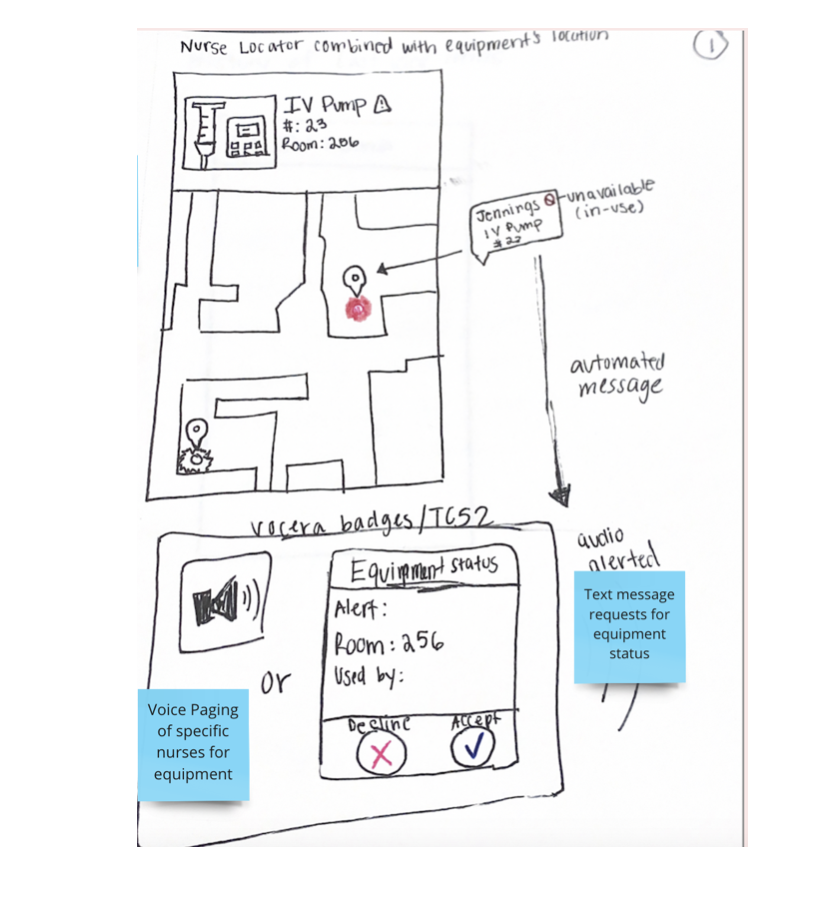 Nurse Locator combined with equipment's location
1
IV Pump
#: 23
Room: 206
Jennings
IV Pump
# 23
unavailable
(in-use)
automated
message
vocera badges/TC52
audio
alerted
Equipment status
Alert:
Room: 256
Used by:
or
Decline
Accept
Text message
requests for
equipment
status
Voice Paging
of specific
nurses for
equipment